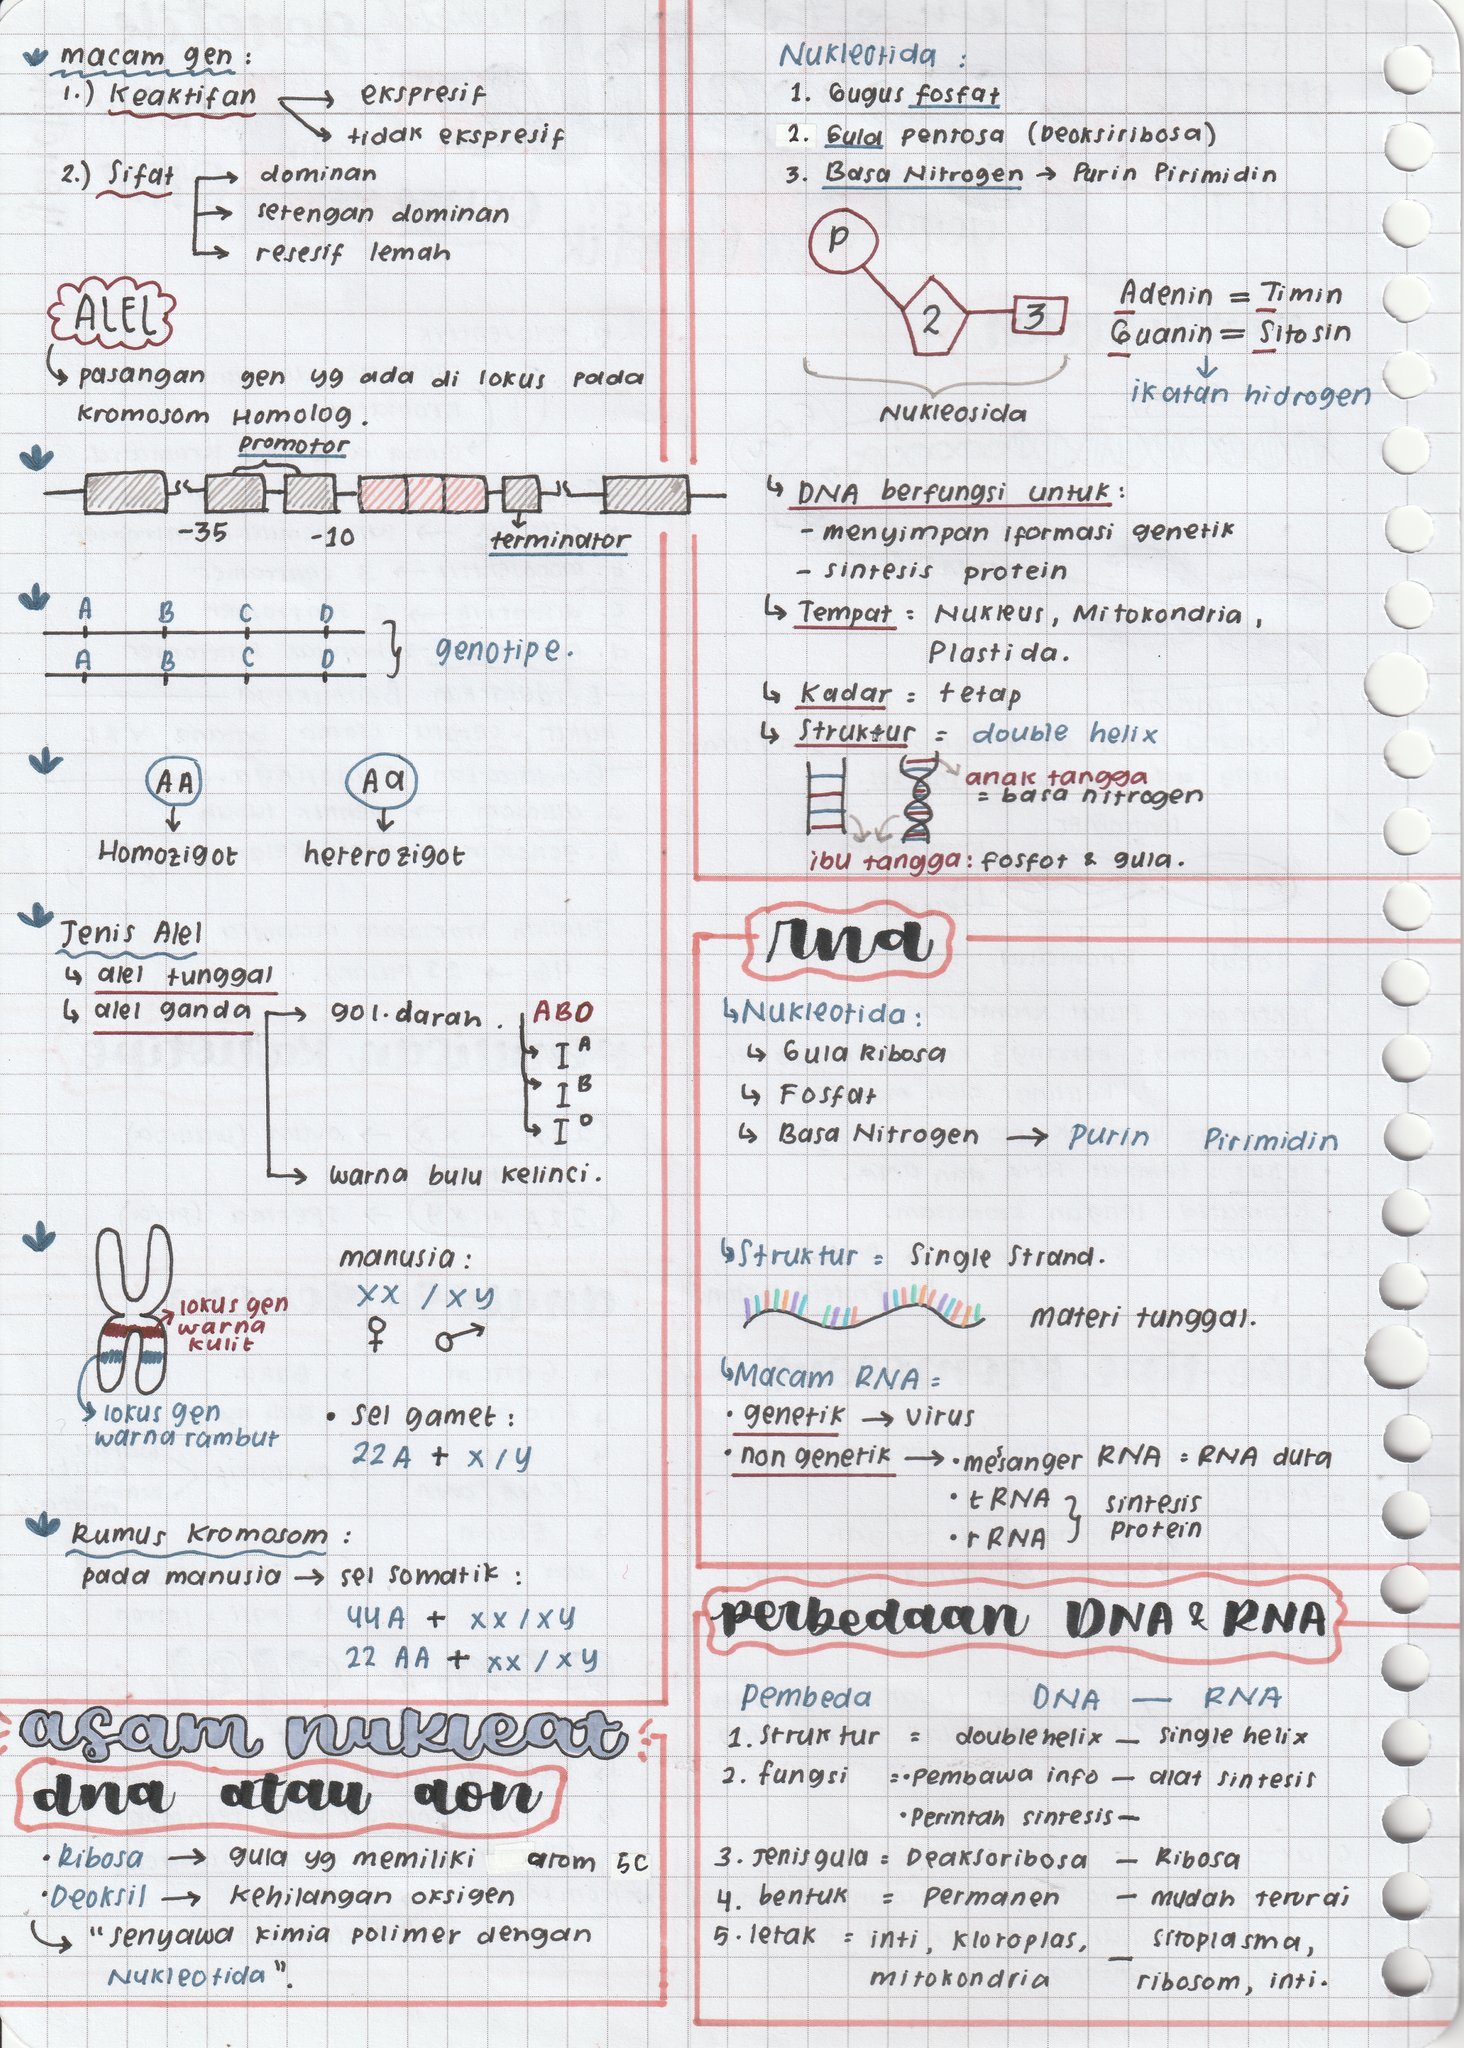 macam gen :
1.) Keaktifan → ekspresif
→ tidak ekspresif
2.) Sifat → dominan
→ setengan dominan
→ resesif lemah
ALEL
↳ pasangan gen yg ada di lokus pada
kromosom Homolog.
promotor
-35
-10
terminator
A B C D
A B C D
genotipe.
AA
Aa
Homozigot
heterozigot
Jenis Alel
↳ alel tunggal
↳ alel ganda → gol. darah. ABO
→ I^A
→ I^B
→ I^O
→ warna bulu kelinci.
lokus gen
warna
kulit
lokus gen
warna rambut
manusia :
xx / xy
♀ ♂
• sel gamet :
22A + x/y
Rumus kromosom :
pada manusia → sel somatik :
44A + xx/xy
22 AA + xx/xy
asam nukleat
dna atau adn
• Ribosa → gula yg memiliki atom 5C
• Deoksil → kehilangan oksigen
↳ "senyawa kimia polimer dengan
Nukleotida".
Nukleotida :
1. Gugus fosfat
2. Gula pentosa (Deoksiribosa)
3. Basa Nitrogen → Purin Pirimidin
P
2
3
Nukleosida
Adenin = Timin
Guanin = Sitosin
↓
ikatan hidrogen
↳ DNA berfungsi untuk :
- menyimpan iformasi genetik
- sintesis protein
↳ Tempat : Nukleus, Mitokondria,
Plastida.
↳ Kadar = tetap
↳ Struktur = double helix
anak tangga
= basa nitrogen
ibu tangga : fosfot & gula.
rna
↳ Nukleotida :
↳ Gula Ribosa
↳ Fosfat
↳ Basa Nitrogen → Purin Pirimidin
↳ Struktur = Single Strand.
materi tunggal.
↳ Macam RNA =
• genetik → virus
• non genetik → • mesanger RNA = RNA duta
• tRNA
• rRNA
sintesis
protein
perbedaan DNA & RNA
Pembeda DNA — RNA
1. Struktur = doublehelix — single helix
2. fungsi = • Pembawa info — alat sintesis
• Perintah sintesis —
3. Jenis gula = Deaksoribosa — Ribosa
4. bentuk = Permanen — mudah terurai
5. letak = inti, kloroplas, — sitoplasma,
mitokondria ribosom, inti.